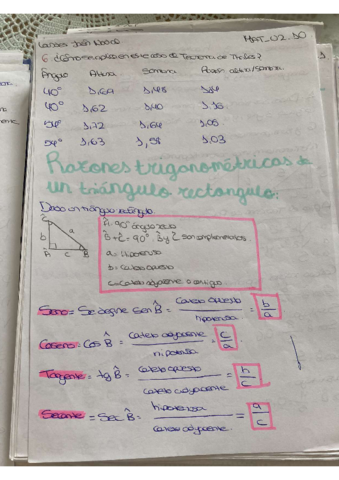 MAT_U2_DO
6 ¿Cómo se aplica en este caso de Teorema de Thales?
Ángulo Altura Sombra Razón altura/sombra
40°
40° 1,62 1,40 1,16
1,72 1,64 1,05
1,63 1,58 1,03
Razones trigonométricas de
un triángulo rectangulo.
Dado un triángulo rectángulo
Ĉ
b a
Â c B̂
Â = 90° ángulo recto
B̂ + Ĉ = 90° B̂ y Ĉ son complementarios
a = hipotenusa
b = cateto opuesto
c = cateto adyacente o contiguo
Seno = Se define Sen B̂ = cateto opuesto / hipotenusa = b/a
Coseno = Cos B̂ = cateto adyacente / hipotenusa = c/a
Tagente = tg B̂ = cateto opuesto / cateto adyacente = h/c
Secante = Sec B̂ = hipotenusa / cateto adyacente = a/c